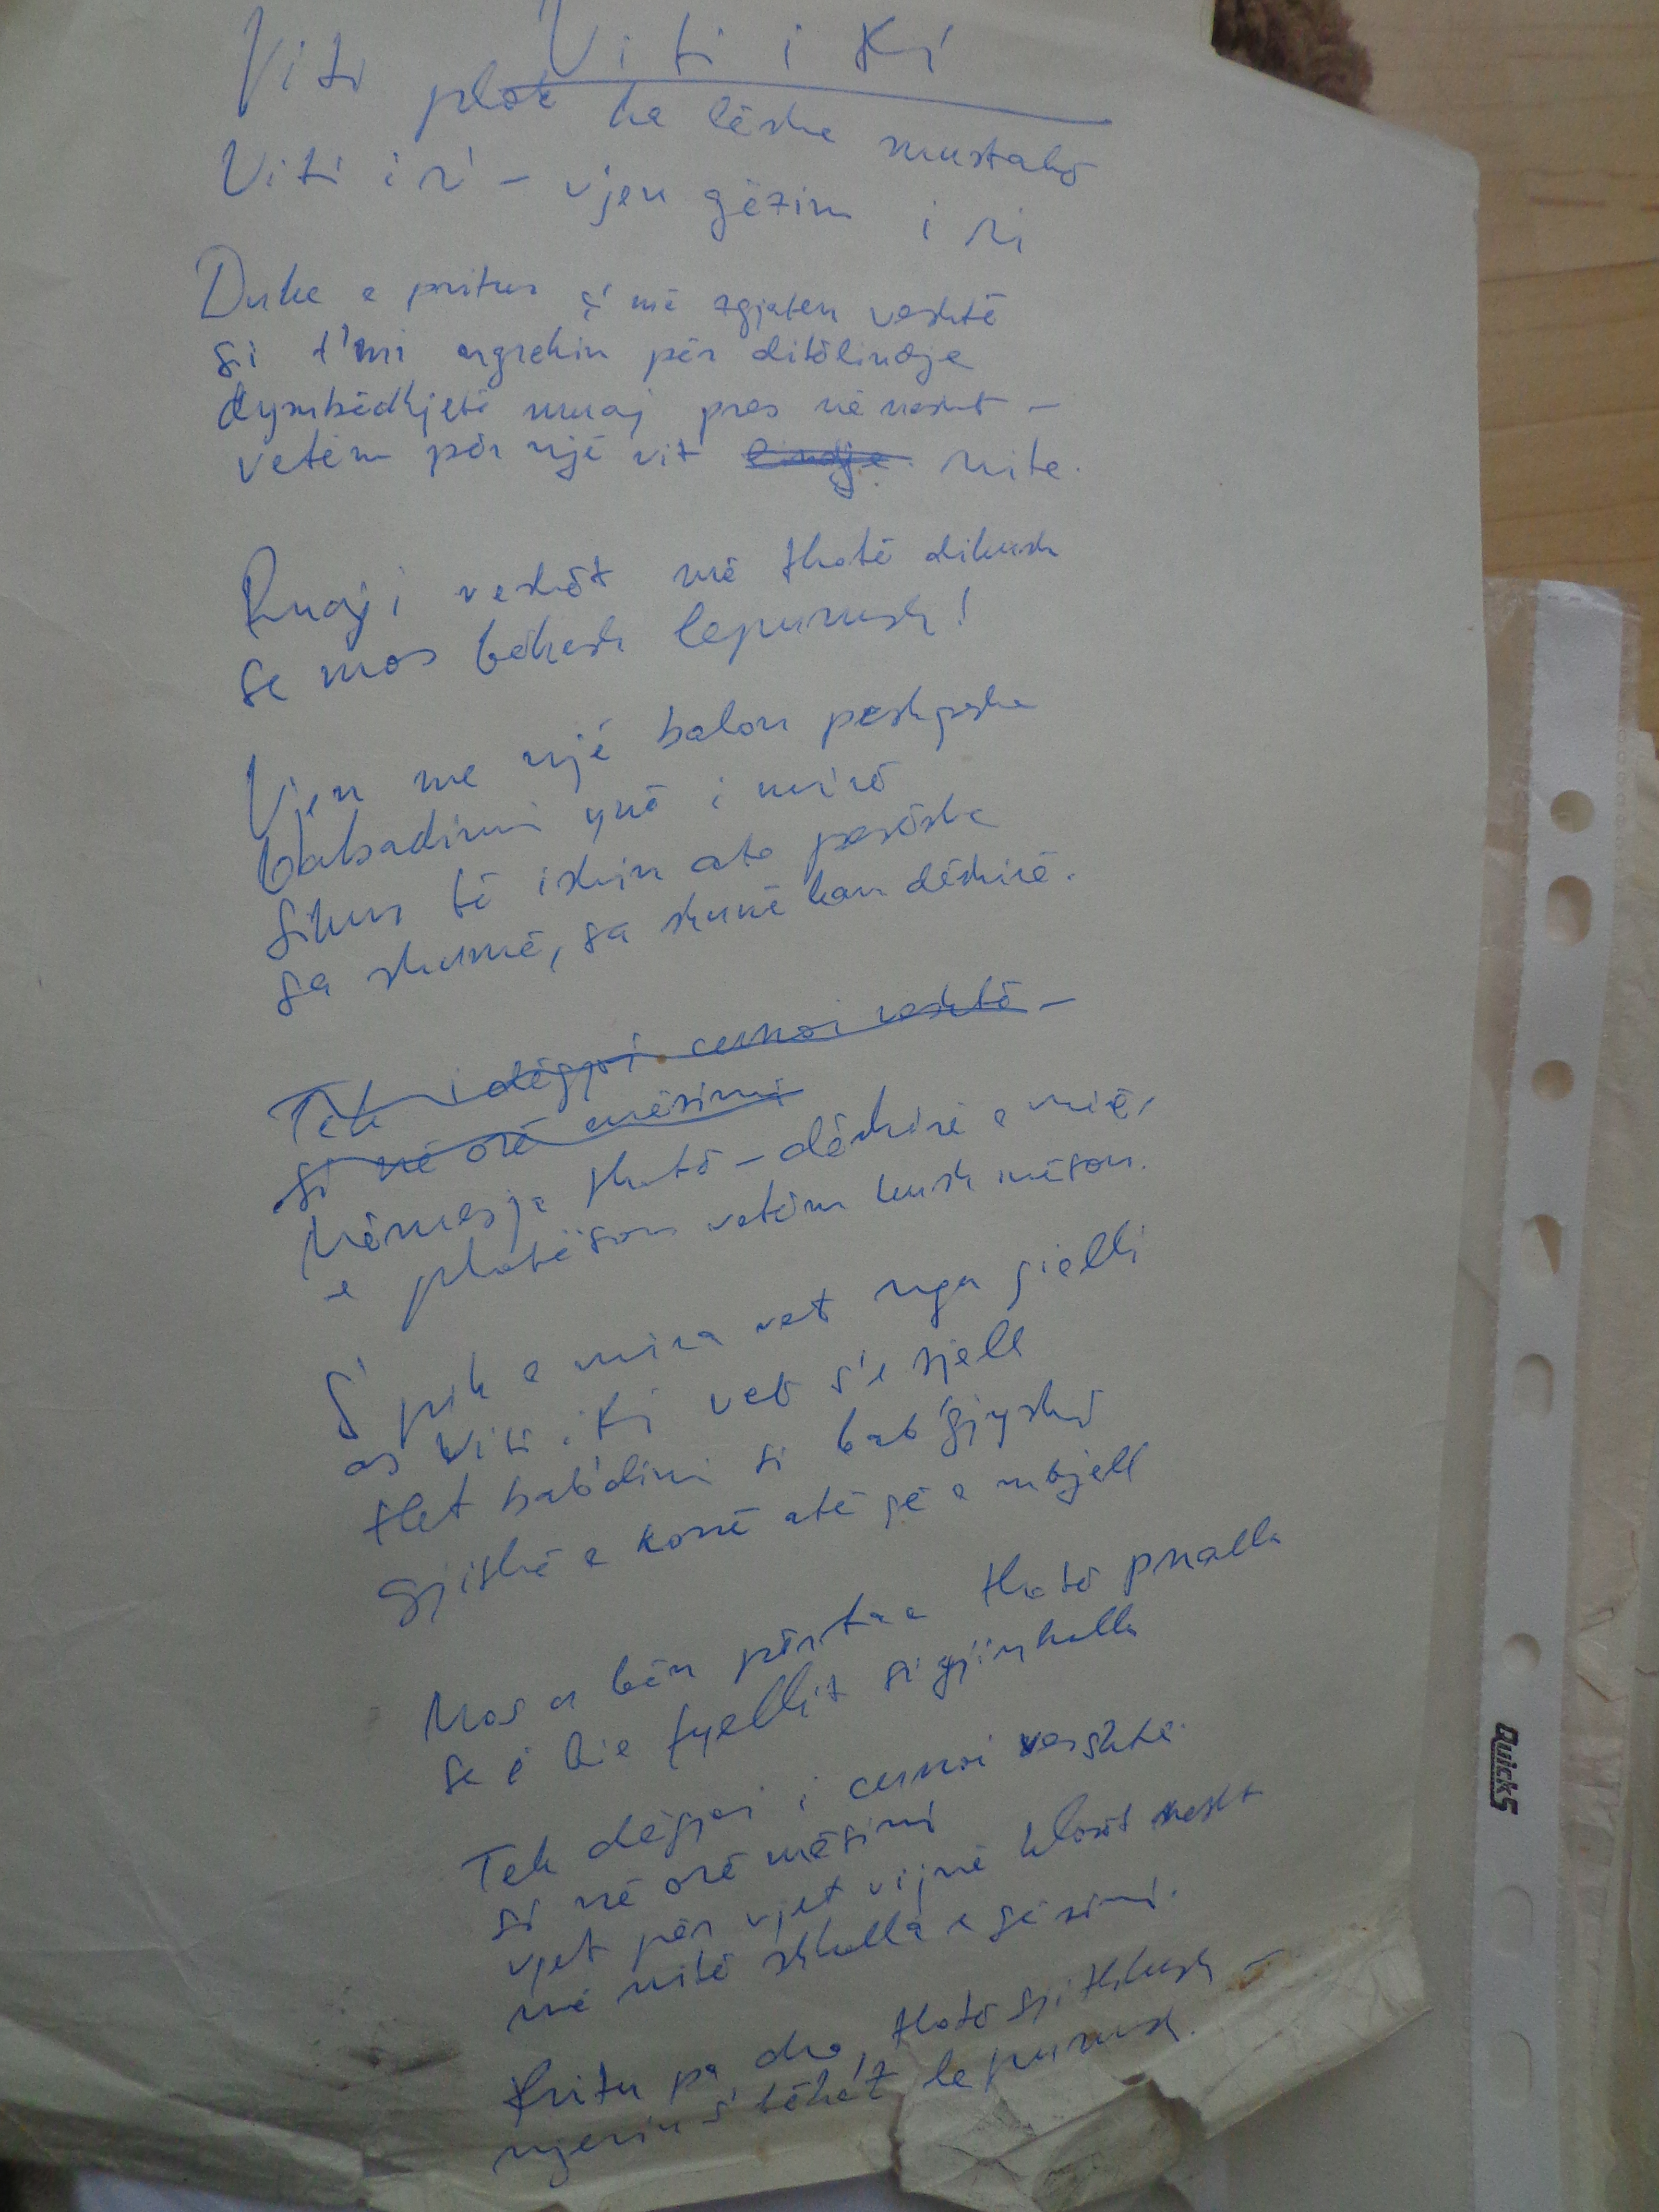 Viti i Ri
Viti plak ka lëshu mustakë
Viti i ri – vjen gëzim i ri
Duke e pritur ç'më zgjaten veshtë
si t'mi ngrehin për ditëlindje
dymbëdhjetë muaj pres në vesht –
vetëm për një vit lindje rrite.
Ruaj i veshët më thotë dikush
se mos bëhesh lepurush!
Vjen me një balon peshqeshe
babadimri ynë i mirë
sikur të ishin ato pesëshe
sa shumë, sa shumë kam dëshirë.
Tek i dëgjoi curroi veshtë –
si në orë mësimi
Mëmësja thotë – dëshirë e mirë,
e plotëson vetëm kush mëson.
S'pik e mira vet nga qielli
as Viti i Ri vet s'e sjell
flet bab'dimri si bab'gjyshi
gjithë e korrë atë që e mbjell
Mos u bën përtac thotë pralla
se i bie fyellit si gjinkalla
Tek dëgjoi i curroi veshtë
si në orë mësimi
vjet për vjet vijmë klasët vesht
më rritë shkalla e gëzimi.
Rritu pa dro, thotë gjithkush –
njeriu s'bëhet lepurush.
Quick5